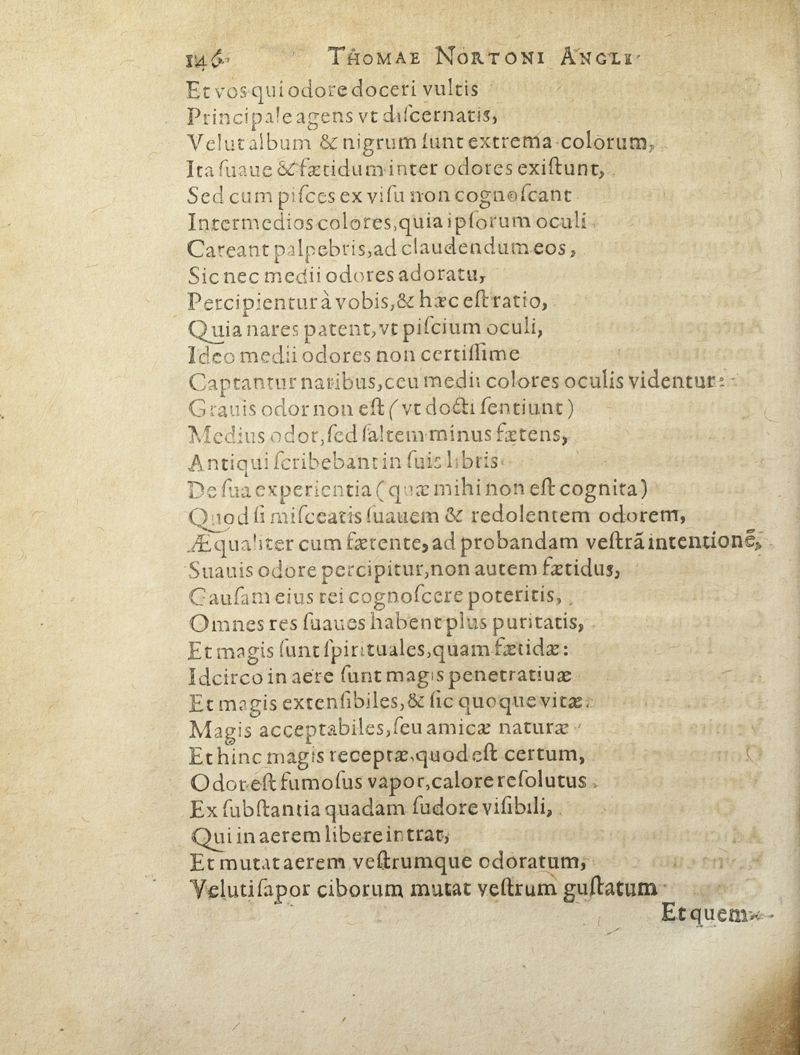 146 THOMAE NORTONI ANGLI
Et vos qui odore doceri vultis
Principale agens vt diſcernatis,
Velut album & nigrum ſunt extrema colorum,
Ita ſuaue & fætidum inter odores exiſtunt,
Sed cum piſces ex viſu non cognoſcant
Intermedios colores,quia ipſorum oculi
Careant palpebris,ad claudendum eos,
Sic nec medii odores adoratu,
Percipientur à vobis,& hæc eſt ratio,
Quia nares patent,vt piſcium oculi,
Ideo medii odores non certiſſime
Captantur naribus,ceu medii colores oculis videntur:
Grauis odor non eſt (vt docti ſentiunt)
Medius odor,ſed ſaltem minus fætens,
Antiqui ſcribebant in ſuis libris
De ſua experientia (quæ mihi non eſt cognita)
Quod ſi miſceatis ſuauem & redolentem odorem,
Æqualiter cum fætente,ad probandam veſtrã intentionẽ,
Suauis odore percipitur,non autem fætidus,
Cauſam eius rei cognoſcere poteritis,
Omnes res ſuaues habent plus puritatis,
Et magis ſunt ſpirituales,quam fætidæ:
Idcirco in aere ſunt magis penetratiuæ
Et magis extenſibiles,& ſic quoque vitæ.
Magis acceptabiles,ſeu amicæ naturæ
Et hinc magis receptæ,quod eſt certum,
Odor eſt fumoſus vapor,calore reſolutus
Ex ſubſtantia quadam ſudore viſibili,
Qui in aerem libere intrat,
Et mutat aerem veſtrumque odoratum,
Veluti ſapor ciborum mutat veſtrum guſtatum
Et quem